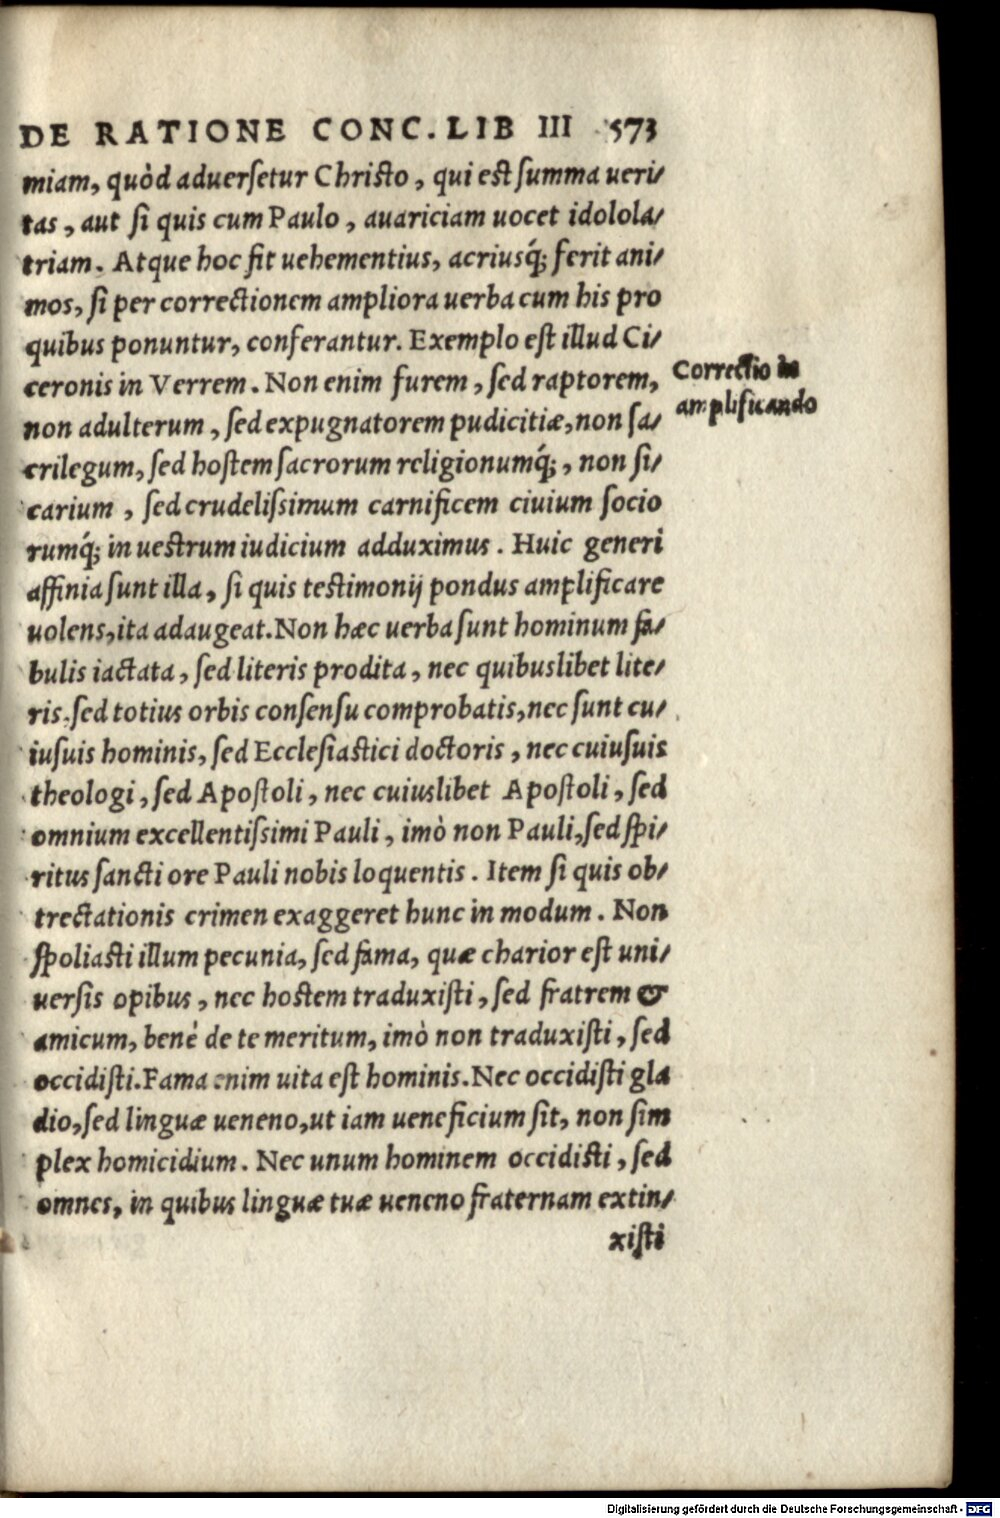 DE RATIONE CONC. LIB III 573
miam, quòd aduerſetur Chriſto, qui eſt ſumma ueri/
tas, aut ſi quis cum Paulo, auariciam uocet idolola/
triam. Atque hoc fit uehementius, acriusq́; ferit ani/
mos, ſi per correctionem ampliora uerba cum his pro
quibus ponuntur, conferantur. Exemplo eſt illud Ci/
ceronis in Verrem. Non enim furem, ſed raptorem,
Correctio in
amplificando
non adulterum, ſed expugnatorem pudicitiæ, non ſa/
crilegum, ſed hoſtem ſacrorum religionumq́;, non ſi/
carium, ſed crudeliſsimum carnificem ciuium ſocio
rumq́; in ueſtrum iudicium adduximus. Huic generi
affinia ſunt illa, ſi quis teſtimonij pondus amplificare
uolens, ita adaugeat. Non hæc uerba ſunt hominum fa/
bulis iactata, ſed literis prodita, nec quibuslibet lite/
ris. ſed totius orbis conſenſu comprobatis, nec ſunt cu/
iuſuis hominis, ſed Eccleſiaſtici doctoris, nec cuiuſuis
theologi, ſed Apoſtoli, nec cuiuslibet Apoſtoli, ſed
omnium excellentiſsimi Pauli, imò non Pauli, ſed ſpi/
ritus ſancti ore Pauli nobis loquentis. Item ſi quis ob/
trectationis crimen exaggeret hunc in modum. Non
ſpoliaſti illum pecunia, ſed fama, quæ charior eſt uni/
uerſis opibus, nec hoſtem traduxiſti, ſed fratrem &
amicum, benè de te meritum, imò non traduxiſti, ſed
occidiſti. Fama enim uita eſt hominis. Nec occidiſti gla
dio, ſed linguæ ueneno, ut iam ueneficium ſit, non ſim
plex homicidium. Nec unum hominem occidiſti, ſed
omnes, in quibus linguæ tuæ ueneno fraternam extin/
xiſti
Digitalisierung gefördert durch die Deutsche Forschungsgemeinschaft - DFG